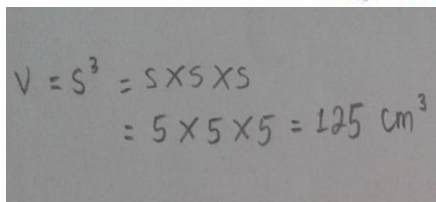 V = S³ = S × S × S
= 5 × 5 × 5 = 125 cm³